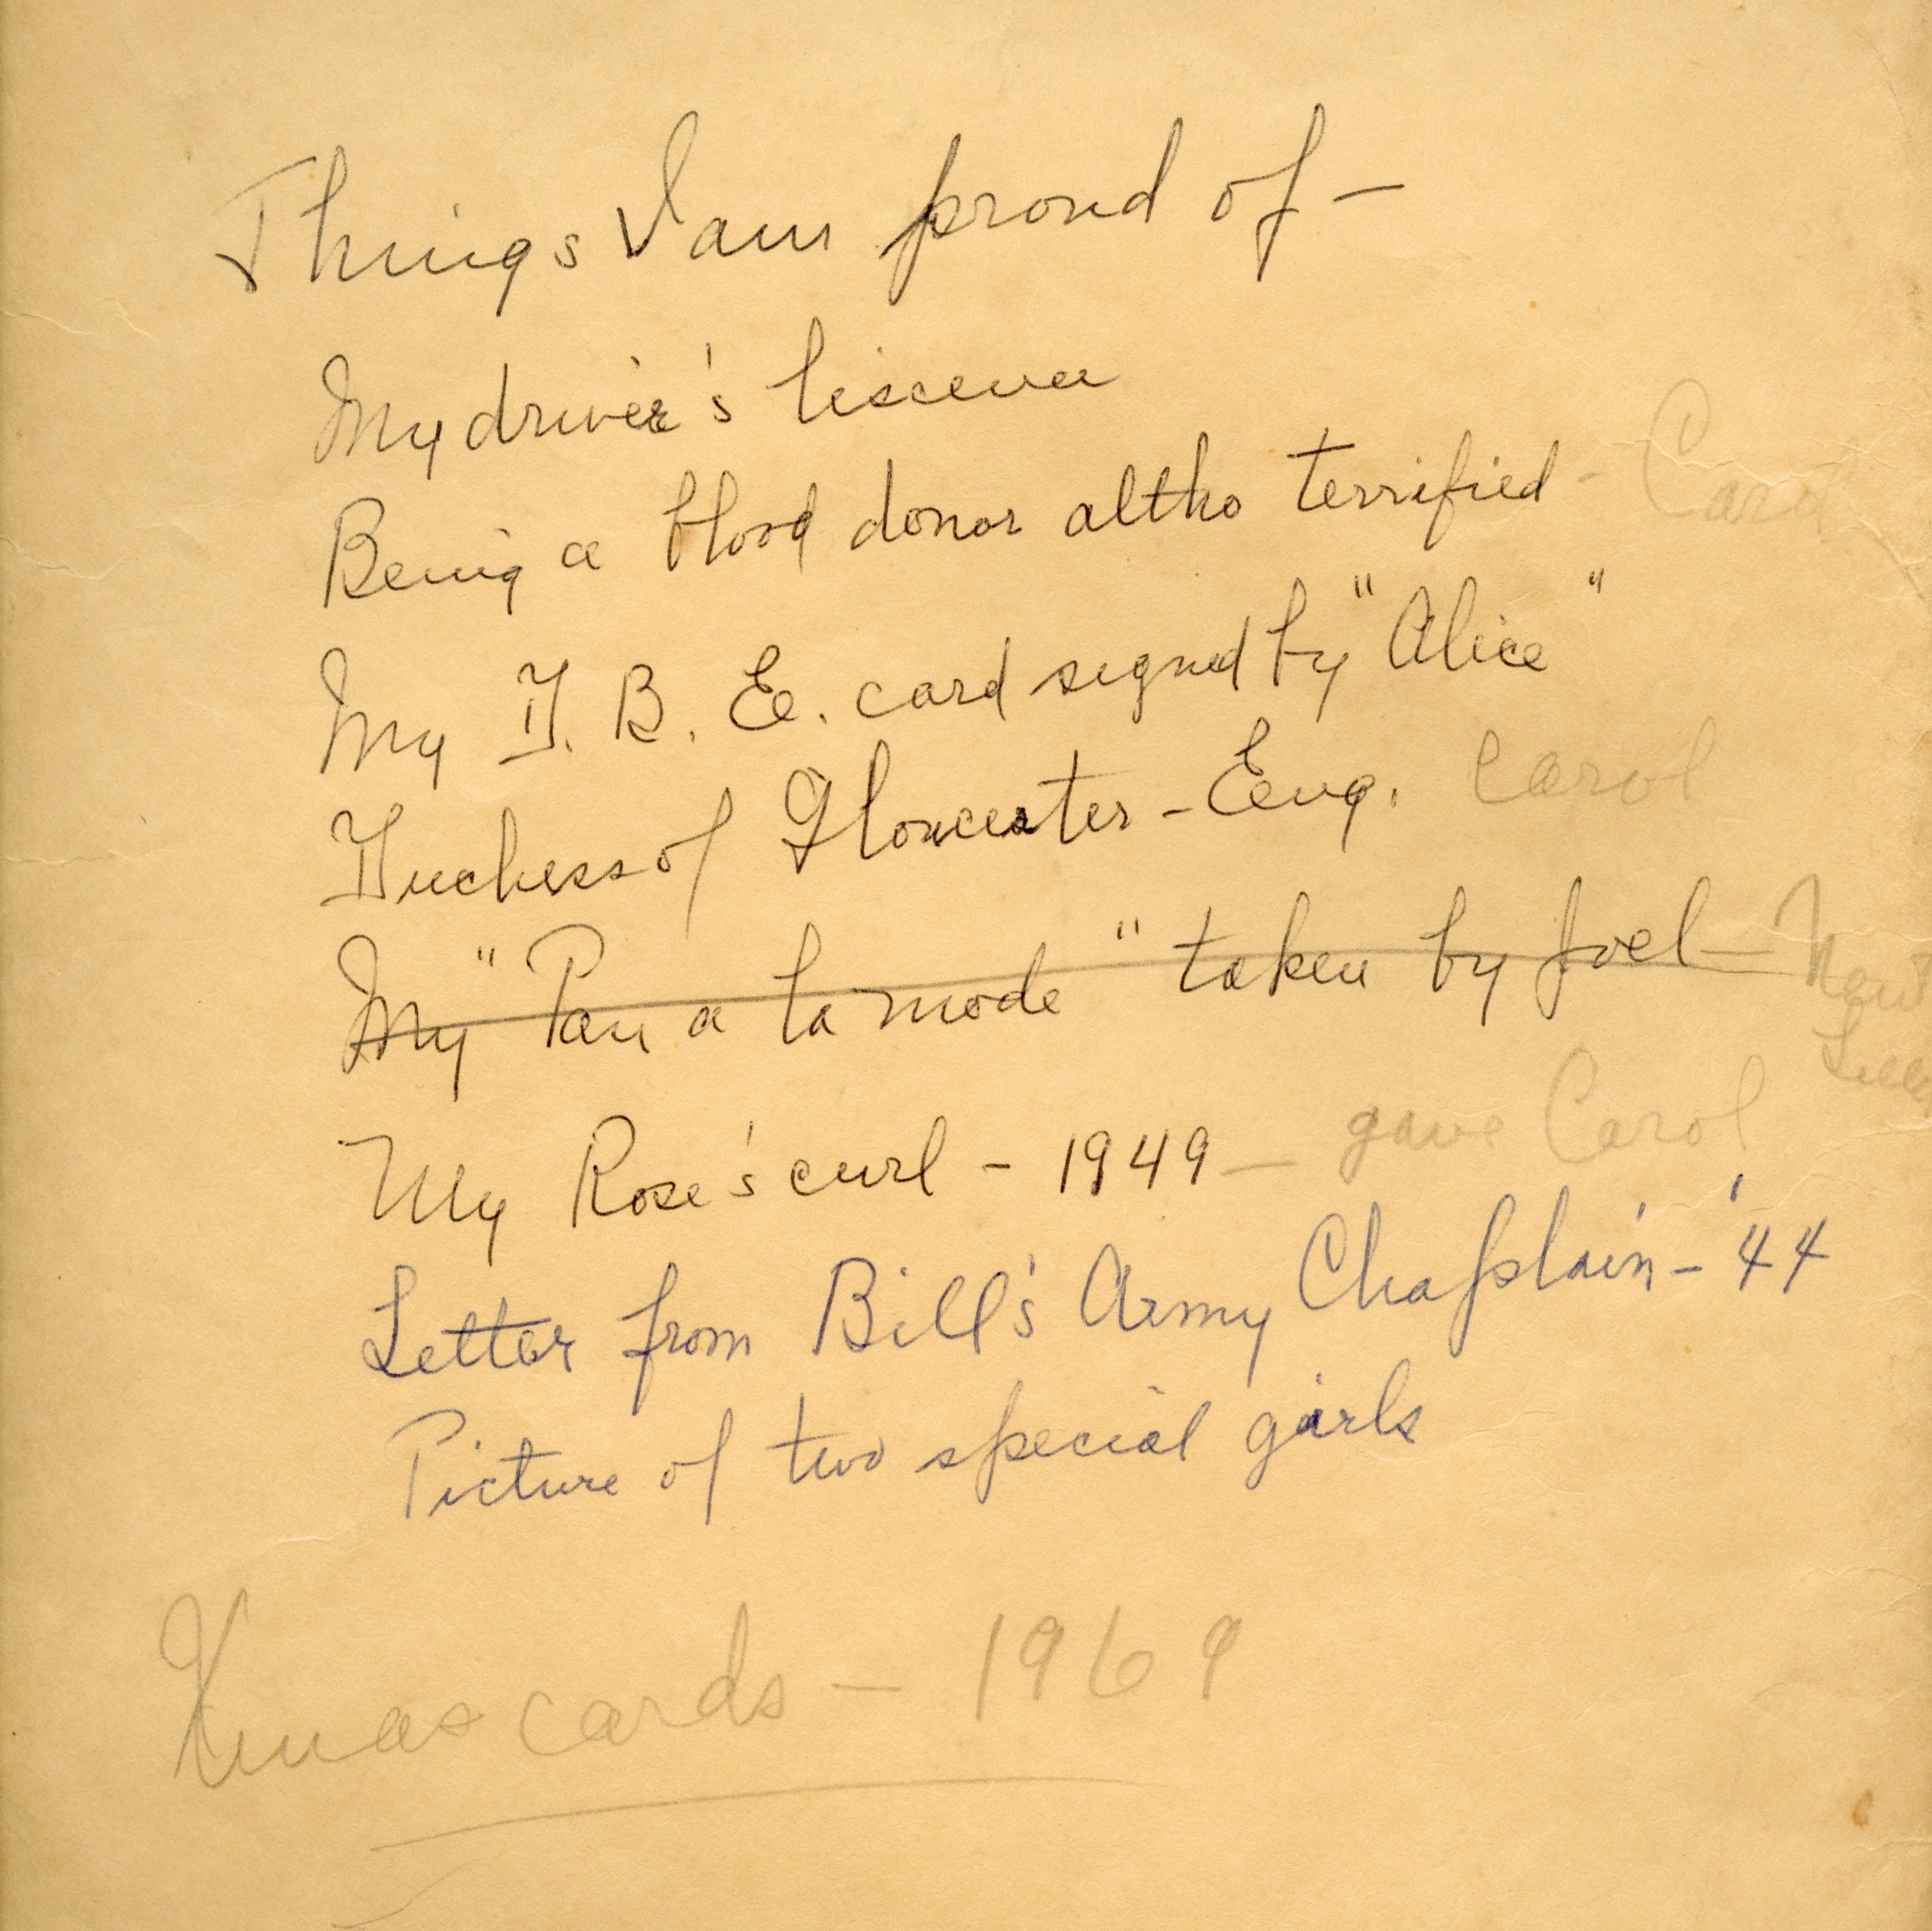 Things I am proud of –
My driver's liscence
Being a blood donor altho terrified – Carol
My D. B. E. card signed by "Alice"
Duchess of Gloucester – Eng. Carol
My "Pan a la mode" taken by Joel –
My Rose's curl – 1949 – gave Carol
Letter from Bill's Army Chaplain – '44
Picture of two special girls
Xmas cards – 1969